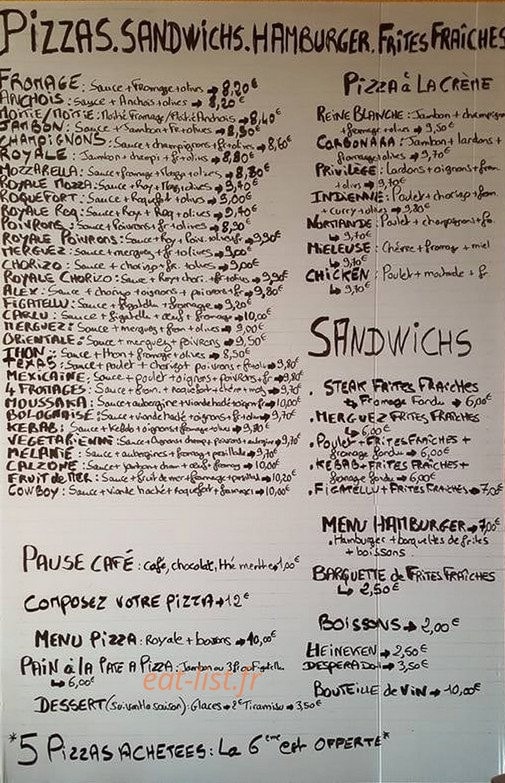 PIZZAS. SANDWICHS. HAMBURGER. FRITES FRAÎCHES
FROMAGE: Sauce + Fromage + olives → 8,20€
ANCHOIS: Sauce + Anchois + olives → 8,20€
MOITIE/MOITIE: Moitié Fromage/Moitié Anchois → 8,40€
JAMBON: Sauce + Jambon + Fr + olives → 8,50€
CHAMPIGNONS: Sauce + champignons + fr + olives → 8,60€
ROYALE: Jambon + champi + fr + olives → 8,80€
MOZZARELLA: Sauce + fromage + Mozza + olives → 8,80€
ROYALE MOZZA: Sauce + Roy + Mozza + olives → 9,40€
ROQUEFORT: Sauce + Roquefort + olives → 9,00€
ROYALE ROQ: Sauce + Roya + Roq + olives → 9,40€
POIVRONS: Sauce + Poivrons + fr + olives → 8,90€
ROYALE POIVRONS: Sauce + Roy + Poiv. olives + fr → 9,90€
MERGUEZ: Sauce + merguez + fr + olives → 9,00€
CHORIZO: Sauce + chorizo + fr. + olives → 9,00€
ROYALE CHORIZO: Sauce + Roya + chori. + fr + olives → 9,90€
ALEX: Sauce + chorizo + oignons + poivrons + fr → 9,80€
FIGATELLU: Sauce + figatellu + fromage → 9,20€
CARLU: Sauce + figatellu + oeuf + fromage → 10,00€
MERGUEZ: Sauce + merguez + from + olives → 9,00€
ORIENTALE: Sauce + merguez + poivrons → 9,50€
THON: Sauce + thon + fromage + olives → 8,50€
TEXAS: Sauce + poulet + chorizo + poivrons + from → 9,80€
MEXICAINE: Sauce + poulet + oignons + poivrons + fr → 9,80€
4 FROMAGES: Sauce + from. + roquefort + chèvre + moz → 9,70€
MOUSSAKA: Sauce + aubergine + viande haché + oign → 10,00€
BOLOGNAISE: Sauce + viande haché + oignons + fr + olives → 9,70€
KEBAB: Sauce + Kebab + oignons + fromage + olives → 9,80€
VEGETARIENNE: Sauce + oignons + champi + poivrons + aubergine → 9,70€
MELANIE: Sauce + aubergines + fromage + persillade → 9,70€
CALZONE: Sauce + jambon + cham + oeuf + fromag → 10,00€
FRUIT de MER: Sauce + fruit de mer + fromage + persillade → 10,20€
COWBOY: Sauce + viande haché + roquefort + fromage → 10,00€
PAUSE CAFÉ: café, chocolat, thé menthe → 1,00€
COMPOSEZ VOTRE PIZZA → 12€
MENU PIZZA: Royale + boissons → 10,00€
PAIN à la PATE A PIZZA: Jambon ou 3 fr ou Figatellu
↳ 6,00€
DESSERT (Suivant la saison): Glaces → 2€ Tiramisu → 3,50€
PIZZA à LA CRÈME
REINE BLANCHE: Jambon + champignon
+ fromage + olives → 9,50€
CARBONARA: Jambon + lardons +
fromage + olives → 9,70€
PRIVILÈGE: Lardons + oignons + from
+ olives → 9,70€
INDIENNE: Poulet + chorizo + from
+ curry + olives → 9,80€
NORMANDE: Poulet + champignons + fr.
↳ 9,70€
MIELEUSE: Chèvre + fromag + miel
↳ 9,70€
CHICKEN: Poulet + moutarde + fr
↳ 9,70€
SANDWICHS
. STEAK FRITES FRAÎCHES
↳ Fromage Fondu → 6,00€
. MERGUEZ FRITES FRAÎCHES
↳ 6,00€
. Poulet + FRITES FRAÎCHES +
fromage fondu → 6,00€
. KEBAB + FRITES FRAÎCHES +
fromage fondu → 6,00€
. FIGATELLU + FRITES FRAÎCHES → 7,00€
MENU HAMBURGER → 7,00€
. Hamburger + barquettes de frites
+ boissons
BARQUETTE de FRITES FRAÎCHES
↳ 2,50€
BOISSONS → 2,00€
HEINEKEN → 2,50€
DESPERADO → 3,50€
BOUTEILLE de VIN → 10,00€
eat-list.fr
*5 PIZZAS ACHETEES: La 6ème est OFFERTE*